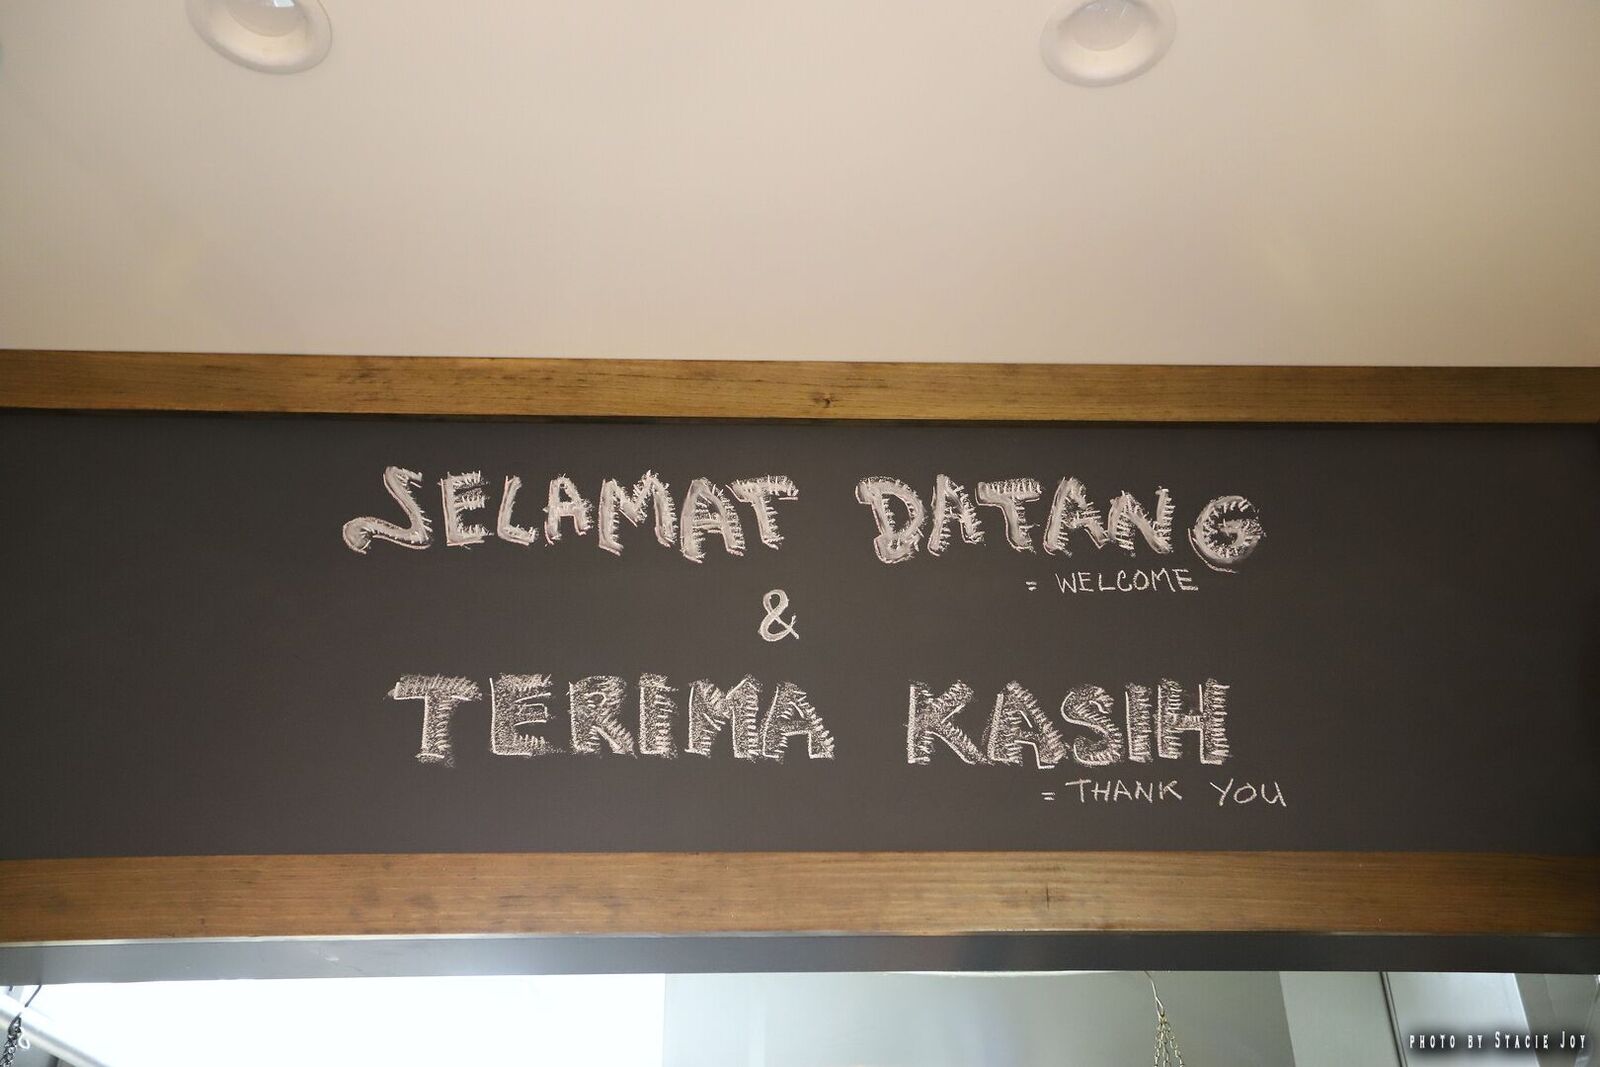 SELAMAT DATANG
= WELCOME
&
TERIMA KASIH
= THANK YOU
PHOTO BY STACIE JOY